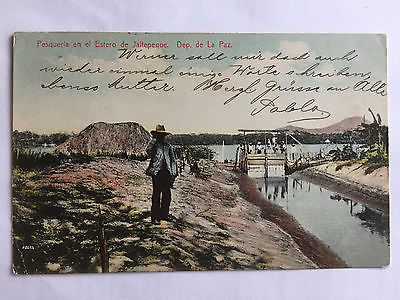 Pesquería en el Estero de Jaltepeque. Dep. de La Paz.
Werner soll mir doch auch
wieder einmal einige Worte schreiben,
ebenso Mutter. Herzl Grüsse an Alle
Pablo